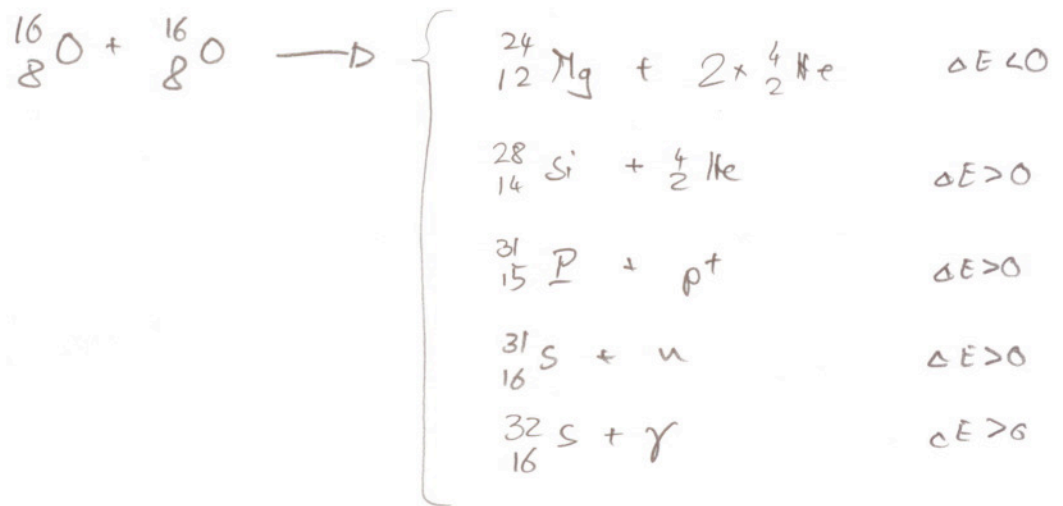 ¹⁶₈O + ¹⁶₈O → { ²⁴₁₂Mg + 2 × ⁴₂He ΔE < 0
²⁸₁₄Si + ⁴₂He ΔE > 0
³¹₁₅P + p⁺ ΔE > 0
³¹₁₆S + n ΔE > 0
³²₁₆S + γ ΔE > 0